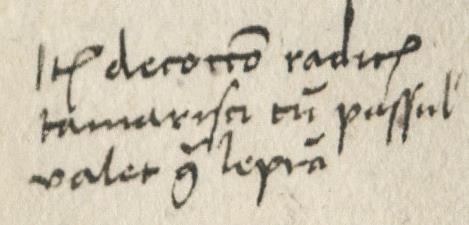 Itꝭ decoctõ radicꝭ
tamarisci cũ passul
valet ꝯ̃ leprã